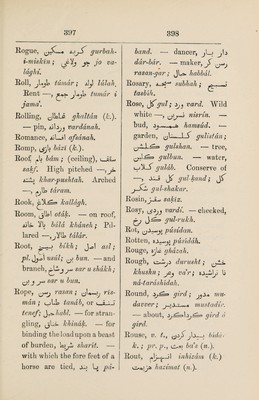 397
Rogue, گربهٔ مسکین gurbah-
i-miskin; جو ولاغی jo va-
lághí.
Roll, طومار túmár; لوله lúlah.
Rent —, طومار جمع túmár i
jama'.
Rolling, غلطان ghaltán (k.).
— pin, وردانه vardánah.
Romance, افسانه afsánah.
Romp, بازی bází (k.).
Roof بام bám; (ceiling), سقف
sakf. High pitched —, خر
پشته khar-pushtah. Arched
—, طارم táram.
Rook, کلاغ kullágh.
Room, اطاق otáḳ. — on roof,
بالا خانه bálá khánah; Pil-
lared —, تالار tálár.
Root, بیخ bíkh; اصل asl;
pl. اصول usúl; بن bun. — and
branch, سر و شاخ sar u shákh;
سر و بن sar u bun.
Rope, رسن rasan; ریسمان ris-
mán; طناب tanáb, or طنف
tenef; حبل habl. — for stran-
gling, خناق khinák. — for
binding the load upon a beast
of burden, شریط sharít. —
with which the fore feet of a
horse are tied, پا بند pá-
398
band. — dancer, دار باز
dár-bár. — maker, رسن گر
rasan-gar; حبال habbál.
Rosary, سبحه subhah; تسبیح
tasbíh.
Rose, گل gul; ورد vard. Wild
white —, نسرین nisrín. —
bud, —
garden, گلستان gulistán;
گلشن gulshan. — tree,
گلبن gulbun. — water,
گلاب guláb. Conserve of
—, گل قند gul-ḳand; گل
شکر gul-shakar.
Rosin, سقز saḳiz.
Rosy, وردی vardí. — cheeked,
گل رخ gul-rukh.
Rot, پوسیدن púsídan.
Rotten, پوسیده púsídah.
Rouge, غازه gházah.
Rough, درشت durusht; خشن
khushn; وعر va'r; نا تراشیده
ná-taráshidah.
Round, گرد gird; مدور mu-
davver; مستدیر mustadír.
— about, گرداگرد gird á
gird.
Rouse, v. t.,
k.; pr. p., باعث ba'ṣ (n.).
Rout, انهزام inhizám (k.)
هزیمت hazímat (n.).